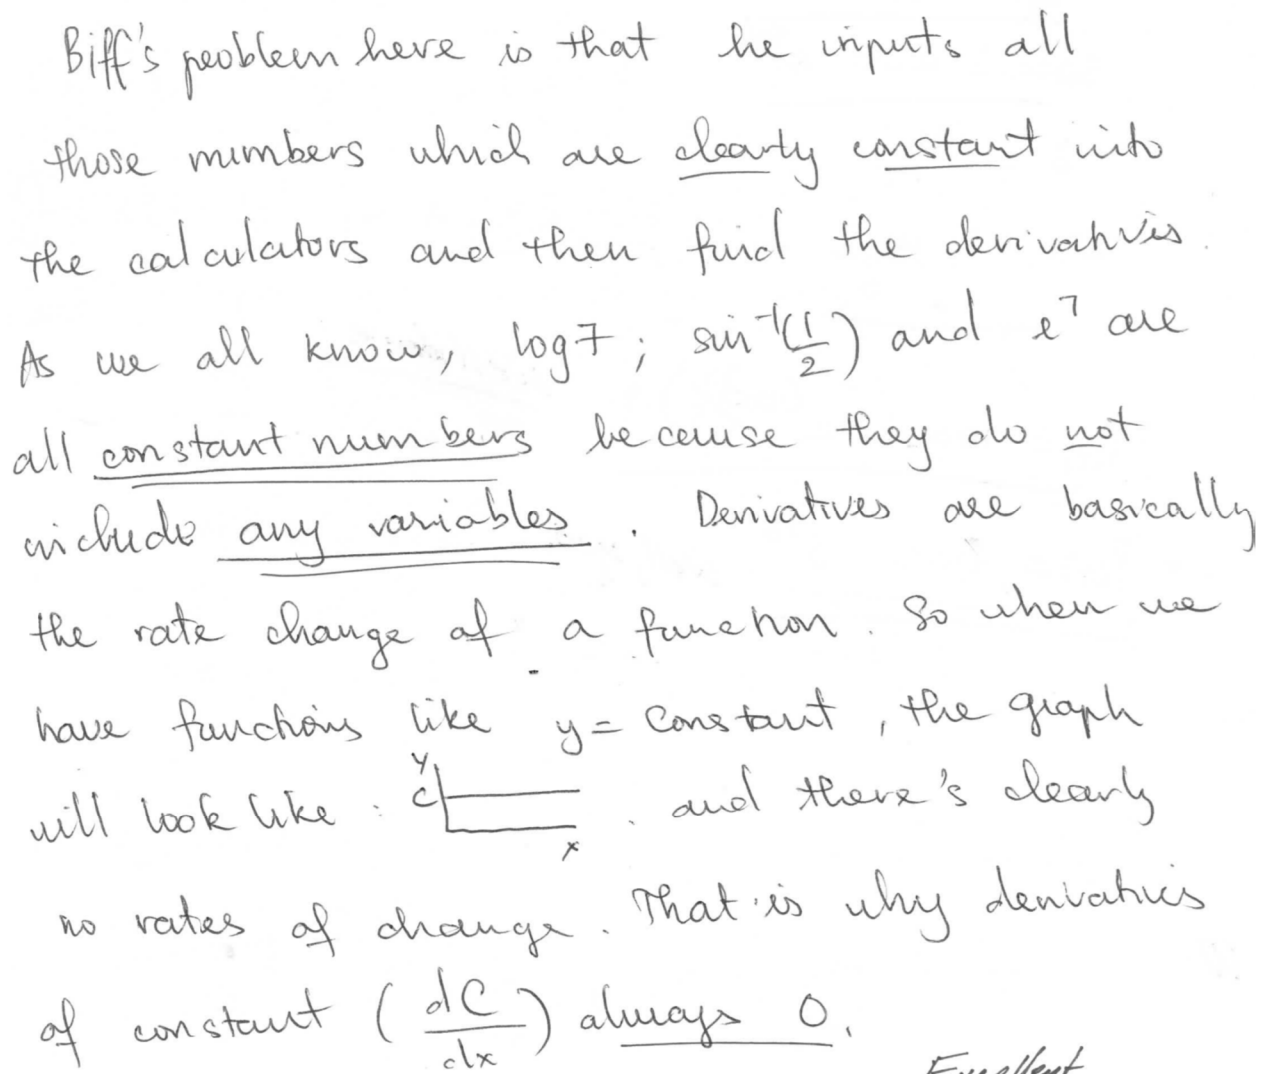 Biff's problem here is that he inputs all
those numbers which are clearly constant into
the calculators and then find the derivatives.
As we all know, log 7 ; sin⁻¹(1/2) and e⁷ are
all constant numbers because they do not
include any variables . Derivatives are basically
the rate change of a function. So when we
have functions like y = constant , the graph
will look like : y c x . and there's clearly
no rates of change. That is why derivatives
of constant (dC/dx) always 0.
Excellent